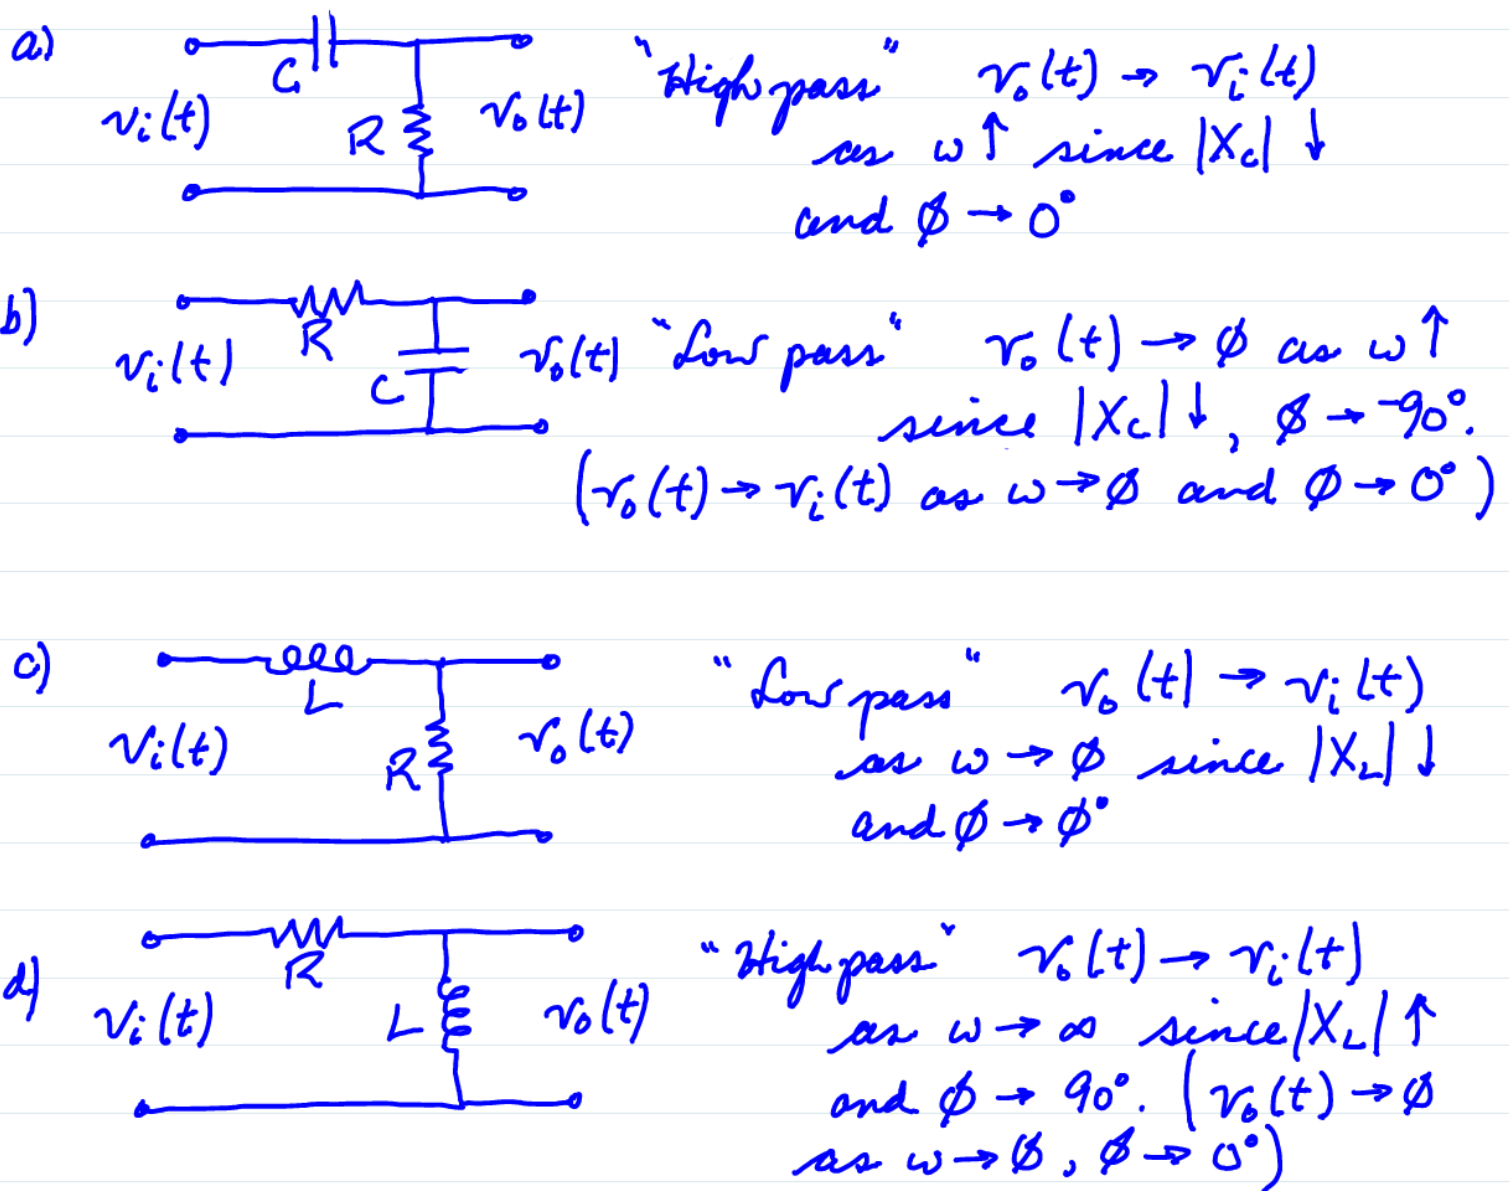 a) C vi(t) R vo(t) "High pass" vo(t) → vi(t)
as ω↑ since |Xc| ↓
and ϕ → 0°
b) R vi(t) C vo(t) "Low pass" vo(t) → ∅ as ω↑
since |Xc|↓, ϕ → -90°.
(vo(t) → vi(t) as ω→∅ and ϕ → 0°)
c) L vi(t) R vo(t) "Low pass" vo(t) → vi(t)
as ω → ∅ since |XL| ↓
and ϕ → ∅°
d) R vi(t) L vo(t) "High pass" vo(t) → vi(t)
as ω → ∞ since |XL| ↑
and ϕ → 90°. (vo(t) → ∅
as ω→∅, ϕ → 0°)